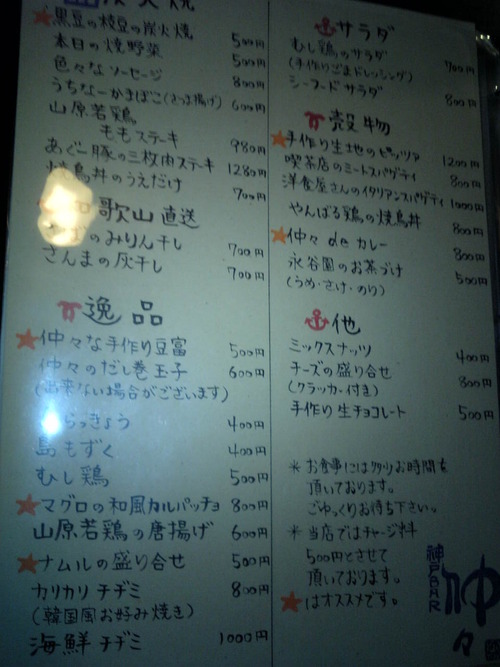 炭火焼
黒豆の枝豆の炭火焼 500円
本日の焼野菜 500円
色々なソーセージ 800円
うちなーかまぼこ(さつま揚げ) 600円
山原若鶏
ももステーキ 980円
あぐー豚の三枚肉ステキ 1280円
焼鳥丼のうえだけ 700円
歌山直送
のみりん干し 700円
さんまの灰干し 700円
逸品
仲々な手作り豆富 500円
仲々のだし巻玉子 600円
(出来ない場合がございます)
らっきょう 400円
島もずく 400円
むし鶏 500円
マグロの和風カルパッチョ 800円
山原若鶏の唐揚げ 600円
ナムルの盛り合せ 500円
カリカリチヂミ 800円
(韓国風お好み焼き)
海鮮チヂミ 1000円
サラダ
むし鶏のサラダ 700円
(手作りごまドレッシング)
シーフードサラダ 800円
穀物
手作り生地のピッツァ 1200円
喫茶店のミートスパゲティ 800円
洋食屋さんのイタリアンスパゲティ 1000円
やんばる鶏の焼鳥丼 800円
仲々deカレー 800円
永谷園のお茶づけ 500円
(うめ・さけ・のり)
他
ミックスナッツ 400円
チーズの盛り合せ 800円
(クラッカー付き)
手作り生チョコレート 500円
*お食事には少々お時間を
頂いております。
ごゆっくりお待ち下さい。
*当店ではチャージ料
500円とさせて
頂いております。
★はオススメです。
神戸BAR
仲々